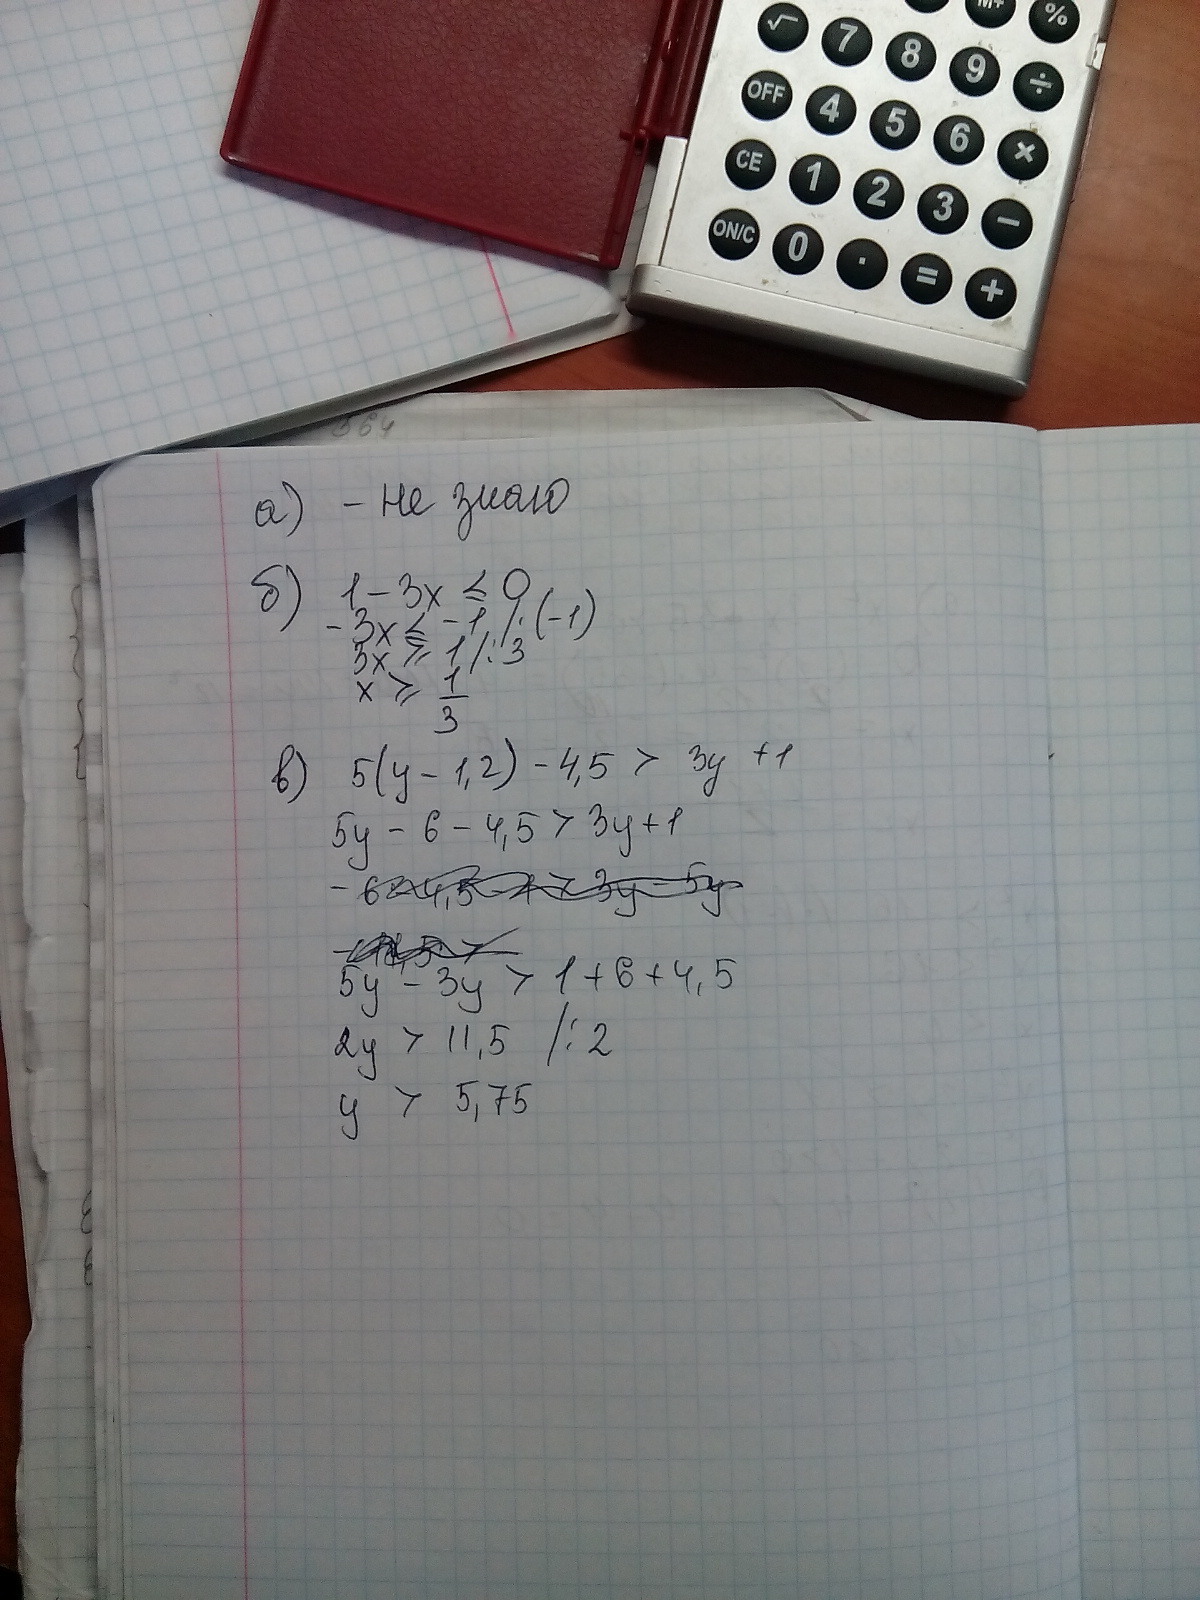 M+ %
√ 7 8 9 ÷
OFF 4 5 6 ×
CE 1 2 3 −
ON/C 0 . = +
364
а) - не знаю
б) 1 - 3x ≤ 0
- 3x ≤ -1 /: (-1)
3x ≥ 1 /: 3
x ≥ 1/3
в) 5(y - 1,2) - 4,5 > 3y + 1
5y - 6 - 4,5 > 3y + 1
5y - 3y > 1 + 6 + 4,5
2y > 11,5 /: 2
y > 5,75